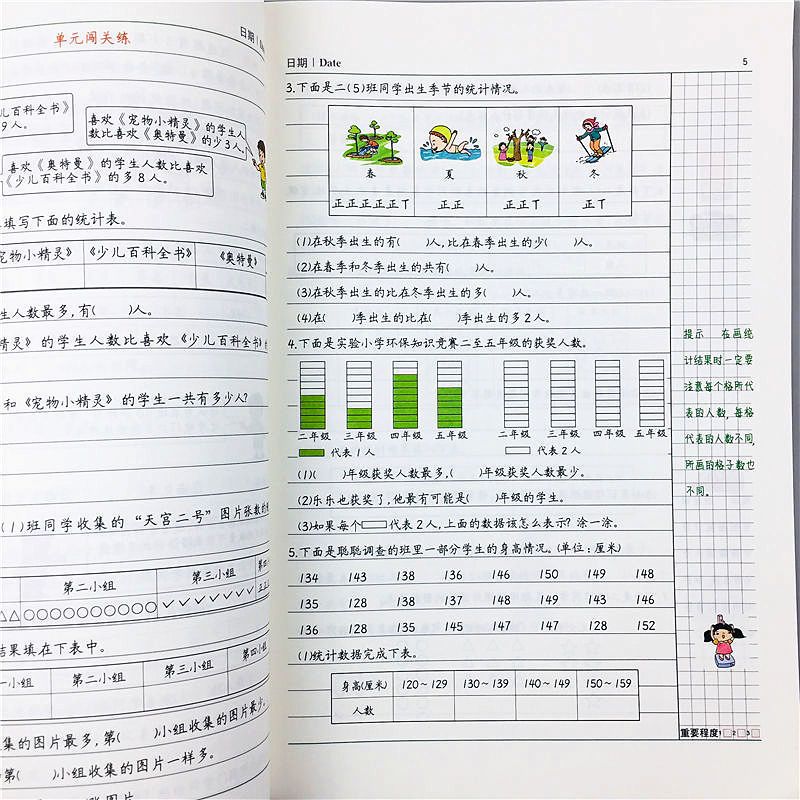 单元闯关练
日期
儿百科全书》
9人。
喜欢《宠物小精灵》的学生人
数比喜欢《奥特曼》的少3人。
喜欢《奥特曼》的学生人数比喜欢
《少儿百科全书》的多8人。
填写下面的统计表。
宠物小精灵》 《少儿百科全书》 《奥特曼》
生人数最多,有( )人。
精灵》的学生人数比喜欢《少儿百科全书》
和《宠物小精灵》的学生一共有多少人?
(1)班同学收集的“天宫二号”图片张数的
第二小组 第三小组
△△ ○○○○○○○○○○○ ✓✓✓✓✓✓✓✓
结果填在下表中。
一小组 第二小组 第三小组 第四小组
集的图片最多,第( )小组收集的图片最少。
第( )小组收集的图片一样多。
日期 | Date 5
3.下面是二(5)班同学出生季节的统计情况。
春 夏 秋 冬
正正正正正丅 正正 正正丅 正丅
(1)在秋季出生的有( )人,比在春季出生的少( )人。
(2)在春季和冬季出生的共有( )人。
(3)在秋季出生的比在冬季出生的多( )人。
(4)在( )季出生的比在( )季出生的多2人。
4.下面是实验小学环保知识竞赛二至五年级的获奖人数。
二年级 三年级 四年级 五年级 二年级 三年级 四年级 五年级
代表1人 代表2人
(1)( )年级获奖人数最多,( )年级获奖人数最少。
(2)乐乐也获奖了,他最有可能是( )年级的学生。
(3)如果每个▭代表2人,上面的数据该怎么表示?涂一涂。
5.下面是聪聪调查的班里一部分学生的身高情况。(单位:厘米)
134 143 138 136 146 150 149 148
135 128 138 137 148 149 143 146
136 128 135 145 147 147 128 152
(1)统计数据完成下表。
身高(厘米) 120~129 130~139 140~149 150~159
人数
提示 在画统
计结果时一定要
注意每个格所代
表的人数,每格
代表的人数不同,
所画的格子数也
不同。
重要程度1□2□3□